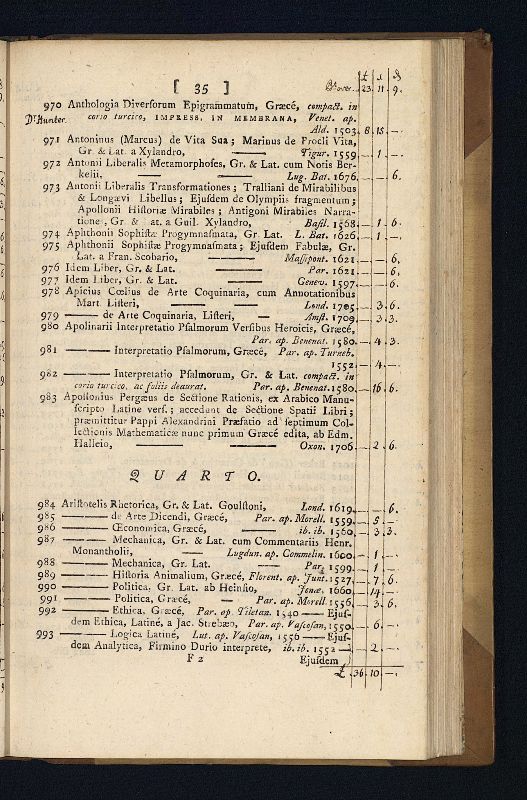 £ s d
[ 35 ] Bt over. 23 11 9.
970 Anthologia Diverſorum Epigrammatum, Græcé, compact. in
Dr. Hunter. corio turcico, IMPRESS. IN MEMBRANA, Venet. ap.
Ald. 1503. 8 15 —
971 Antoninus (Marcus) de Vita Sua; Marinus de Procli Vita,
Gr. & Lat. a Xylandro, —— Tigur. 1559. — 1 —
972 Antonii Liberalis Metamorphoſes, Gr. & Lat. cum Notis Ber-
kelii, —— —— Lug. Bat. 1676. — — 6.
973 Antonii Liberalis Transformationes; Tralliani de Mirabilibus
& Longævi Libellus; Ejuſdem de Olympiis fragmentum;
Apollonii Hiſtoriæ Mirabiles; Antigoni Mirabiles Narra-
tiones, Gr. & Lat. a Guil. Xylandro, Baſil. 1568. — 1 6
974 Aphthonii Sophiſtæ Progymnaſmata, Gr. Lat. L. Bat. 1626. — 1 —
975 Aphthonii Sophiſtæ Progymnaſmata; Ejuſdem Fabulæ, Gr.
Lat. a Fran. Scobario, —— Maſſipont. 1621. — — 6,
976 Idem Liber, Gr. & Lat. —— Par. 1621. — — 6.
977 Idem Liber, Gr. & Lat. —— Genev. 1597. — — 6.
978 Apicius Cœlius de Arte Coquinaria, cum Annotationibus
Mart. Liſteri, —— —— Lond. 1705. — 3 6.
979 —— de Arte Coquinaria, Liſteri, — Amſt. 1709. — 3 3.
980 Apolinarii Interpretatio Pſalmorum Verſibus Heroicis, Græcé,
Par. ap. Benenat. 1580. — 4 3
981 —— Interpretatio Pſalmorum, Græcé, Par. ap. Turneb.
1552. — 4 —
982 —— Interpretatio Pſalmorum, Gr. & Lat. compact. in
corio turcico, ac foliis deaurat. Par. ap. Benenat. 1580. — 16 6
983 Apollonius Pergæus de Sectione Rationis, ex Arabico Manu-
ſcripto Latine verſ.; accedunt de Sectione Spatii Libri;
præmittitur Pappi Alexandrini Præfatio ad ſeptimum Col-
lectionis Mathematicæ nunc primum Græcé edita, ab Edm.
Halleio, —— —— Oxon. 1706. — 2 6.
QUARTO.
984 Ariſtotelis Rhetorica, Gr. & Lat. Goulſtoni, Lond. 1619. — — 6.
985 —— de Arte Dicendi, Græcé, Par. ap. Morell. 1559. — 5 —
986 —— Œconomica, Græcé, —— ib. ib. 1560. — 3 3
987 —— Mechanica, Gr. & Lat. cum Commentariis Henr.
Monantholii, —— Lugdun. ap. Commelin. 1600. — 1 —
988 —— Mechanica, Gr. Lat. —— Par. 1599. — 1 —
989 —— Hiſtoria Animalium, Græcé, Florent. ap. Junt. 1527. — 7 6
990 —— Politica, Gr. Lat. ab Heinſio, Jenæ. 1660. — 14 —
991 —— Politica, Græcé, — Par. ap. Morell. 1556. — 3 6
992 —— Ethica, Græcé, Par. ap. Tiletan. 1540 — Ejuſ-
dem Ethica, Latiné, a Jac. Strebæo, Par. ap. Vaſcoſan, 1550. — 6 —
993 —— Logica Latiné, Lut. ap. Vaſcoſan, 1556 — Ejuſ-
dem Analytica, Firmino Durio interprete, ib. ib. 1552 — — 2 —
F 2 Ejuſdem
£ 36 10 —